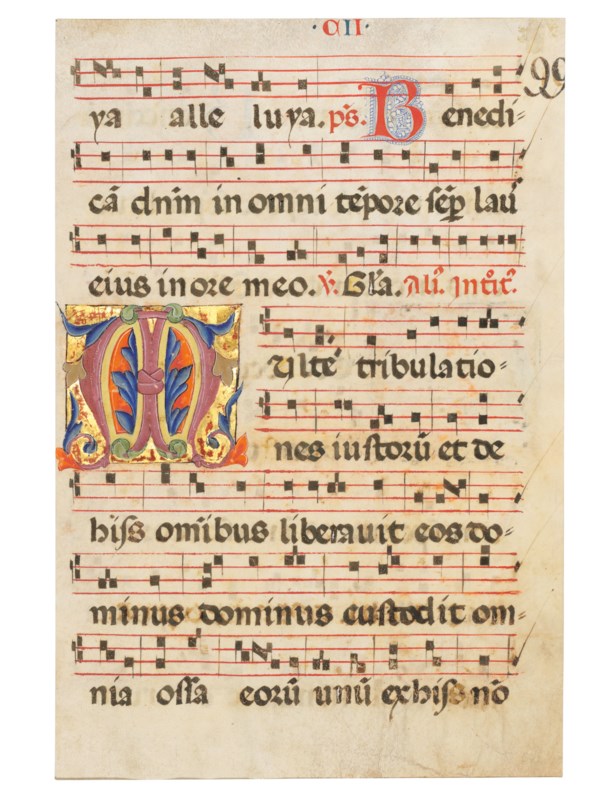 ·CII·
99
ya alle luya. ps. Benedi-
cā dnm̄ in omni tēpore sēp lau
eius in ore meo. V. Gl̄a. Alī. Intōit.
Multe tribulatio-
nes iustorū et de
hiss om̄ibus liberauit eos do-
minus dominus custodit om-
nia ossa eorū unū ex hiss nō